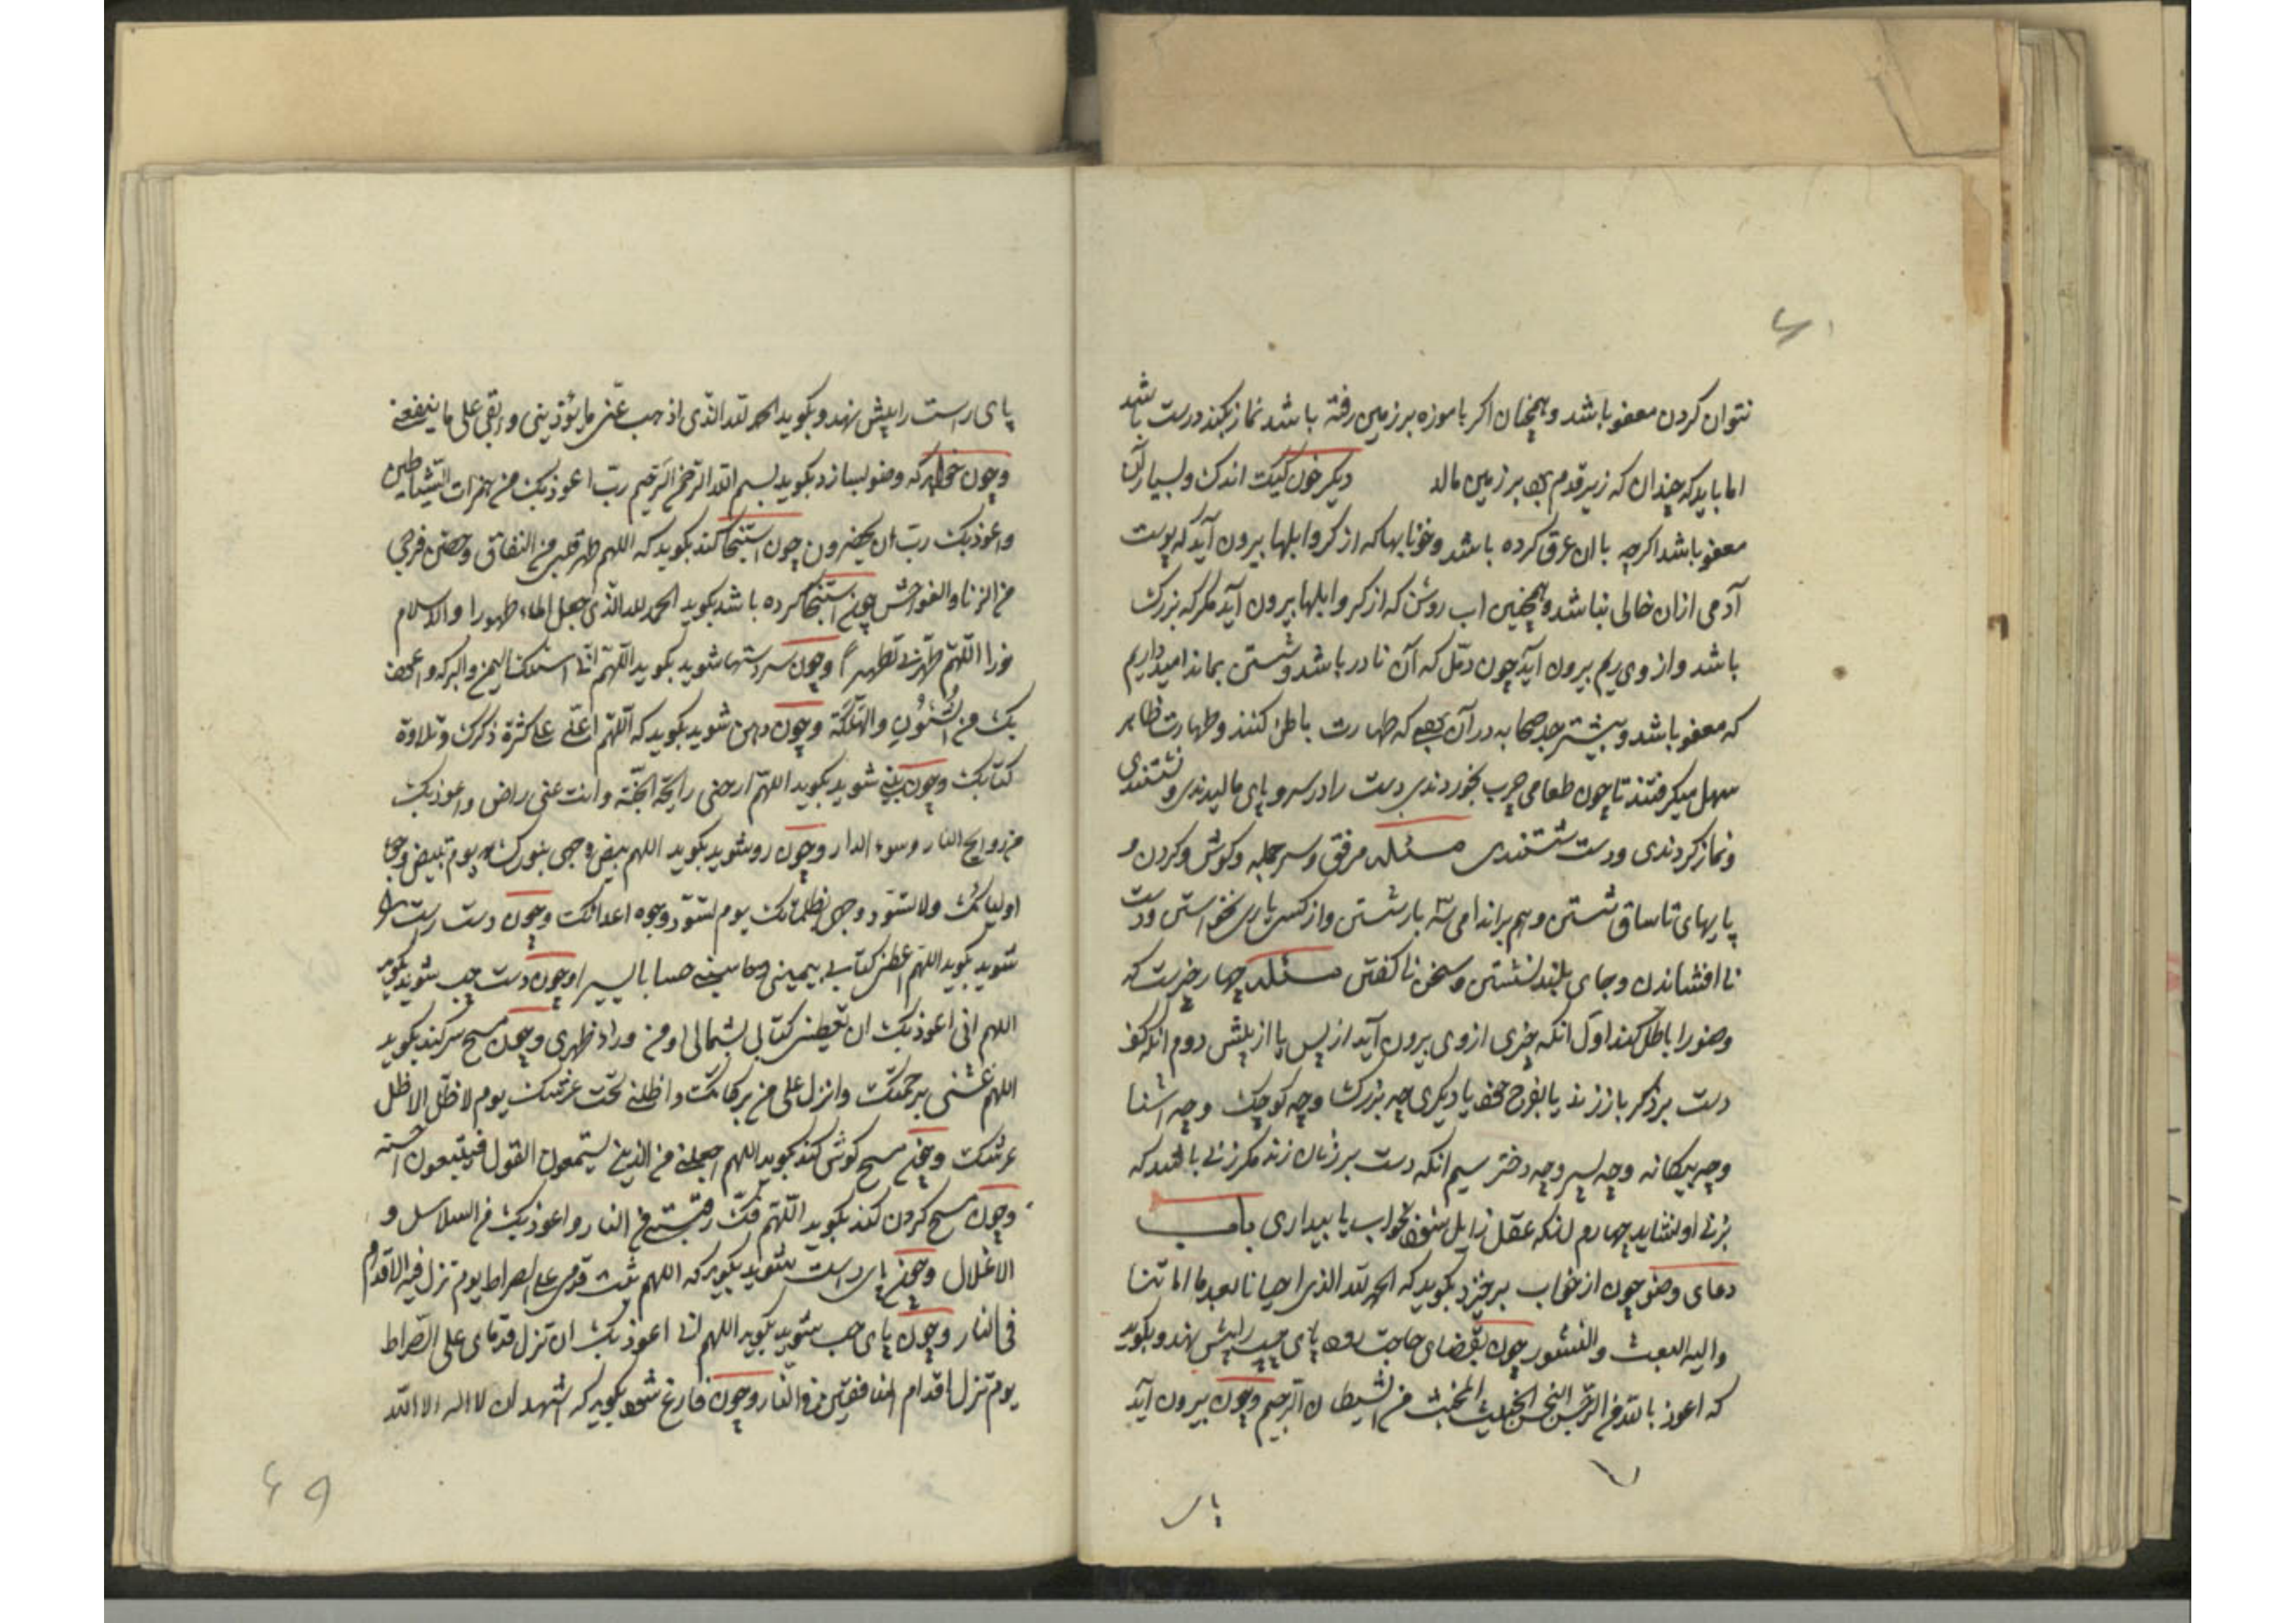 نتوان کردن معفو باشد و همچنان اکر با موزه بر زمین رفته باشد نماز بکند درست باشد
اما باید که چندان که زیر قدم بر زمین مالد دیکر خون کیک اندک و بسیار آن
معفو باشد اکرچه با ان عرق کرده باشد و خونابها که از کر و ابلها بیرون آید که پوست
آدمی ازان خالی نباشد و همچنین اب روشن که از کر و ابلها بیرون آید مکر که بزرک
باشد و از وی ریم بیرون آید چون دمل که آن نادر باشد و شستن بماند امید داریم
که معفو باشد و بیشتر جد صحابه در آن که طهارت باطن کنند و طهارت ظاهر
سهل میکرفتند تا چون طعامی چرب بخوردندی دست را در سر و پای مالیدندی و نشستندی
و نماز کردندی و دست شستندی مسئله مرفق و سر جمله و کوش و کردن و
پایهای تا ساق شستن و هر اندامی سه بار شستن و از کس یاری نخواستن و دست
نا افشاندن و جای بلند نشستن و سخن نا کفتن مسئله چهار چیزست که
وضو را باطل کند اول انکه چیزی از وی بیرون آید از پس یا از پیش دوم انکه کف
دست بر ذکر باز زند یا بفرج خود یا دیکری چه بزرک و چه کوچک و چه اشنا
و چه بیکانه و چه پسر و چه دختر سیم انکه دست بر زنان زند مکر زنی باشد که
بزنی او نشاید چهارم انکه عقل زایل شود بخواب یا بیداری باب
دعای وضو چون از خواب برخیزد بکوید که الحمد لله الذی احیانا بعد ما اماتنا
و الیه البعث و النشور چون بقضای حاجت رود پای چپ را پیش نهد و بکوید
که اعوذ بالله من الرجس النجس الخبیث المخبث من الشیطان الرجیم و چون بیرون آید
پای
پای راست را پیش نهد و بکوید الحمد لله الذی اذهب عنی ما یؤذینی و ابقی علی ما ینفعنی
و چون خواهد که وضو بسازد بکوید بسم الله الرحمن الرحیم رب اعوذ بک من همزات الشیاطین
و اعوذ بک رب ان یحضرون چون استنجا کند بکوید که اللهم طهر قلبی من النفاق و حصن فرجی
من الزنا و الفواحش چون استنجا کرده باشد بکوید الحمد لله الذی جعل الماء طهورا و الاسلام
نورا اللهم طهرنی تطهیرا و چون سر دستها شوید بکوید اللهم انی اسئلک الیمن و البرکه و اعوذ
بک من الشؤم و الهلکة و چون دهن شوید بکوید که اللهم اعنی علی کثرة ذکرک و تلاوة
کتابک و چون بینی شوید بکوید اللهم ارحنی رایحة الجنة و انت عنی راض و اعوذ بک
من روایح النار و سوء الدار و چون رو شوید بکوید اللهم بیض وجهی بنورک یوم تبیض وجوه
اولیائک و لا تسود وجهی بظلماتک یوم تسود وجوه اعدائک و چون دست راست را
شوید بکوید اللهم اعطنی کتابی بیمینی و حاسبنی حسابا یسیرا و چون دست چپ شوید بکوید
اللهم انی اعوذ بک ان تعطینی کتابی بشمالی او من وراء ظهری و چون مسح سر کند بکوید
اللهم غشنی برحمتک و انزل علی من برکاتک و اظلنی تحت عرشک یوم لا ظل الا ظل
عرشک و چون مسح کوش کند بکوید اللهم اجعلنی من الذین یستمعون القول فیتبعون احسنه
و چون مسح کردن کند بکوید اللهم فک رقبتی من النار و اعوذ بک من السلاسل و
الاغلال و چون پای راست شوید بکوید که اللهم ثبت قدمی علی الصراط یوم تزل فیه الاقدام
فی النار و چون پای چپ شوید بکوید اللهم انی اعوذ بک ان تزل قدمای علی الصراط
یوم تزل اقدام المنافقین فی النار و چون فارغ شود بکوید که اشهد ان لا اله الا الله